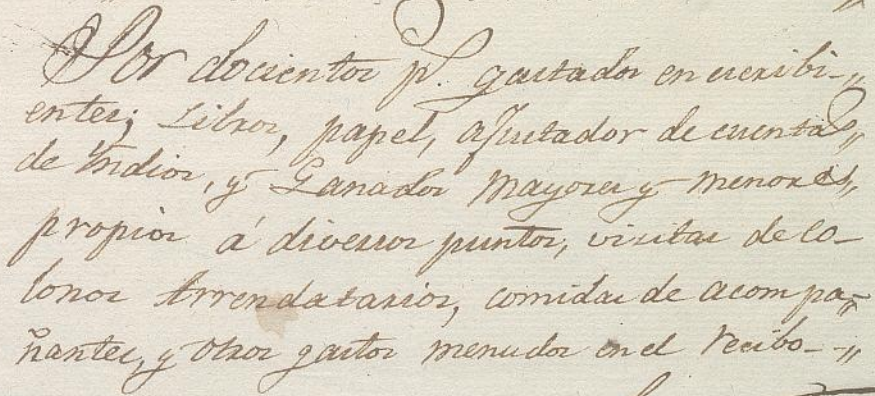 Por docientos p.s gastados en escribi-
entes; Libros, papel, ajustador de cuentas
de Indios, y Ganados Mayores y menores,
propios á diversos puntos, visitas de Co-
lonos Arrendatarios, comidas de acompa-
ñantes, y otros gastos menudos en el recibo-